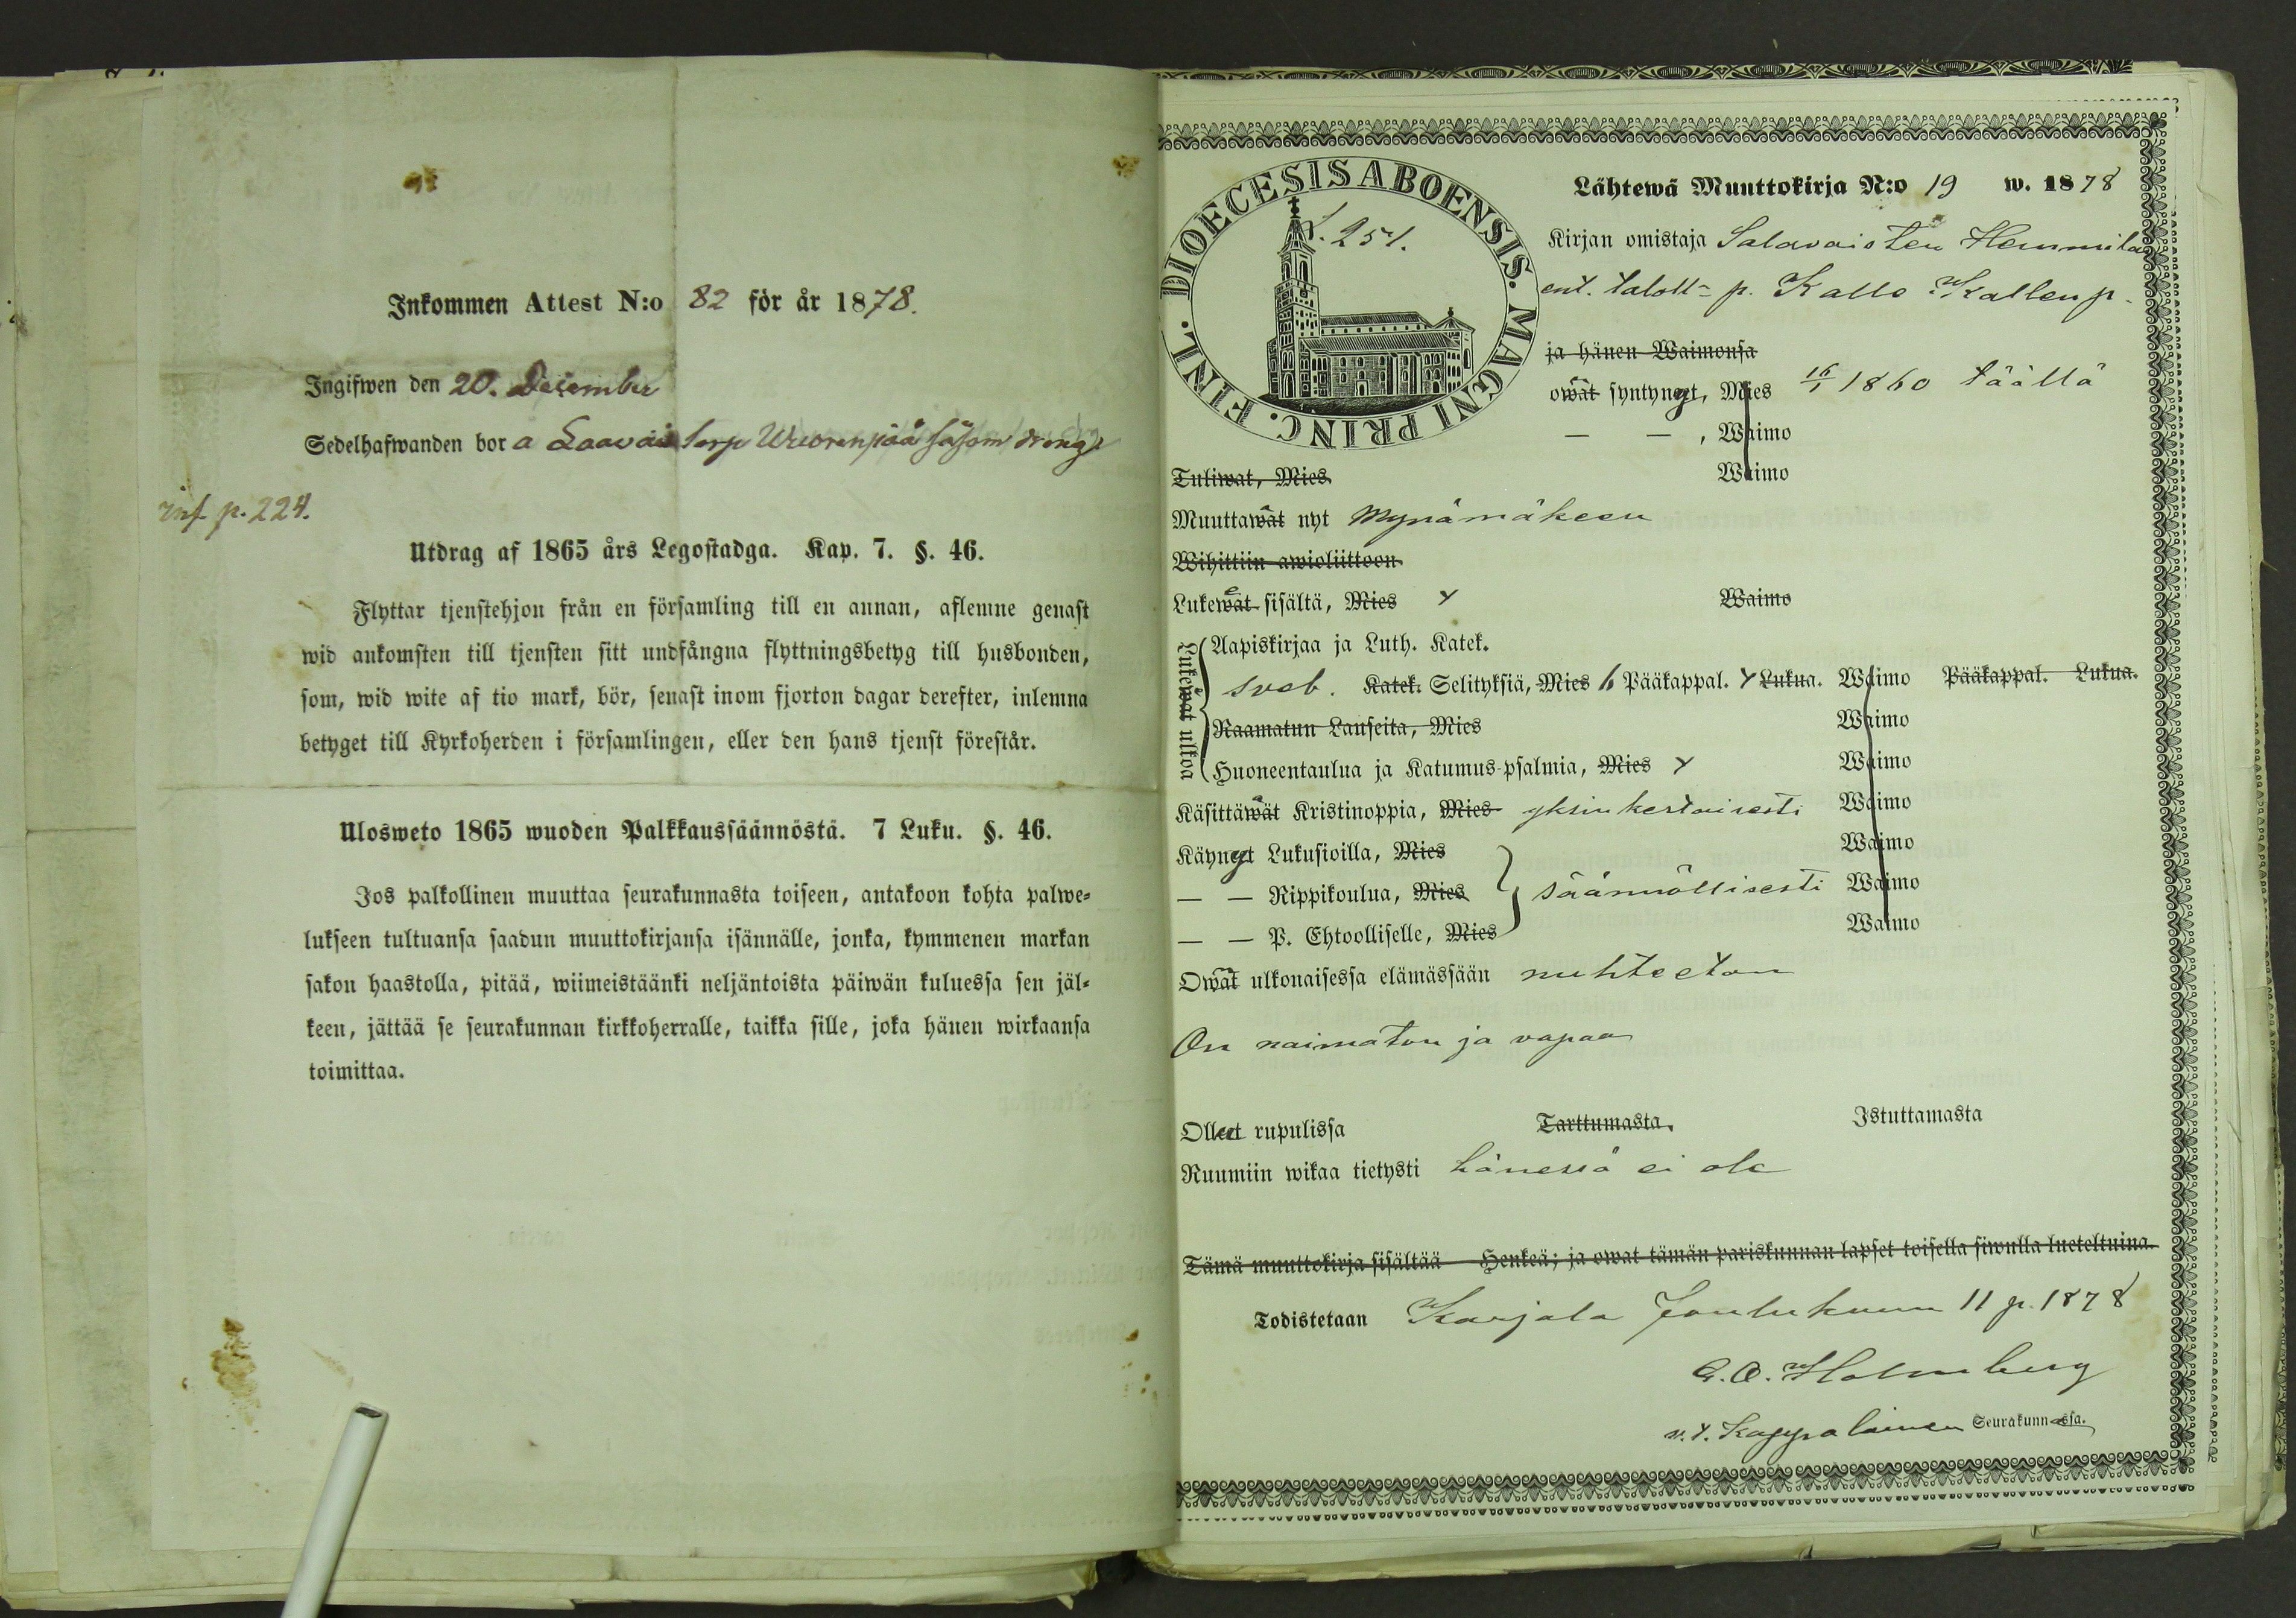 Inkommen Attest N:o 82 för år 1878.
Ingifwen den 20. December
Sedelhafwanden bor a Laavais torp Wuorenpää såsom dräng
inf. p. 224.
Utdrag af 1865 års Legostadga. Kap. 7. §. 46.
Flyttar tjenstehjon från en församling till en annan, aflemne genast
wid ankomsten till tjensten sitt undfångna flyttningsbetyg till husbonden,
som, wid wite af tio mark, bör, senast inom fjorton dagar derefter, inlemna
betyget till Kyrkoherden i församlingen, eller den hans tjenst förestår.
Ulosweto 1865 wuoden Palkkaussäännöstä. 7 Luku. §. 46.
Jos palkollinen muuttaa seurakunnasta toiseen, antakoon kohta palwe=
lukseen tultuansa saadun muuttokirjansa isännälle, jonka, kymmenen markan
sakon haastolla, pitää, wiimeistäänki neljäntoista päiwän kuluessa sen jäl=
keen, jättää se seurakunnan kirkkoherralle, taikka sille, joka hänen wirkaansa
toimittaa.
DIOECESIS ABOENSIS. MAGNI PRINC. FINL.
251.
Lähtewä Muuttokirja N:o 19 w. 1878
Kirjan omistaja Salavaisten Hemmilä
ent. taloll= p. Kalle Kallenp.
ja hänen Waimonsa
owat syntynyt, Mies 16/1 1860 täällä
— — , Waimo
Tuliwat, Mies Waimo
Muuttawat nyt Mynämäkeen
Wihittiin awioliittoon
Lukewat sisältä, Mies y Waimo
Lukewat ulkoa
Aapiskirjaa ja Luth. Katek.
sveb. Katek. Selityksiä, Mies 6 Pääkappal. y Lukua. Waimo Pääkappal. Lukua.
Raamatun Lauseita, Mies Waimo
Huoneentaulua ja Katumus-psalmia, Mies y Waimo
Käsittäwät Kristinoppia, Mies yksinkertaisesti Waimo
Käynyt Lukusioilla, Mies Waimo
— — Rippikoulua, Mies säännöllisesti Waimo
— — P. Ehtoolliselle, Mies Waimo
Owat ulkonaisessa elämässään nuhteeton
On naimaton ja vapaa
Olleet rupulissa Tarttumasta. Istuttamasta
Ruumiin wikaa tietysti hänessä ei ole
Tämä muuttokirja sisältää Henkeä; ja owat tämän pariskunnan lapset toisella siwulla lueteltuina.
Todistetaan Karjala Joulukuun 11 p. 1878
G. O. Holmberg
v. t. Kappalainen Seurakunnassa.